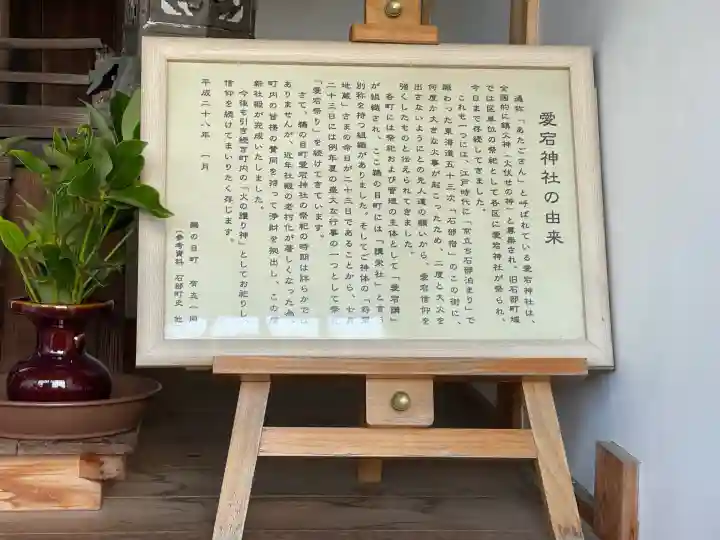 愛宕神社の由来
通称「あたごさん」と呼ばれている愛宕神社は、
全国的に鎮火神(火伏せの神)と尊崇され、旧石部町域
では区単位の祭祀として各区に愛宕神社が祭られ、
今日まで存続してきました。
これも一つには、江戸時代に「京立ち石部泊まり」で
賑わった東海道五十三次「石部宿」のこの街に、
何度か大きな火事が起こったため、二度と大火を
出さないようにとの先人達の願いから、愛宕信仰を
強くしたものと伝えられてきました。
各町には祭祀および管理の主体として「愛宕講」
が組織され、ここ鵜の目町には「講栄社」と言う
別称を持つ組織がありました。そしてご神体の「将軍
地蔵」さまの命日が二十三日であることから、七月
二十三日には例年夏の最大な行事の一つとして祭礼
「愛宕祭り」を続けてきています。
さて、鵜の目町愛宕神社の祭祀の時期は詳らかで
ありませんが、近年社殿の老朽化が著しくなった為、
町内の皆様の賛同を持って浄財を拠出し、この度
新社殿が完成いたしました。
今後も引き続き町内の「火の護り神」としてお祀りし、
信仰を続けてまいりたく存じます。
平成二十八年 一月
鵜の目町 有志一同
(参考資料 石部町史 他